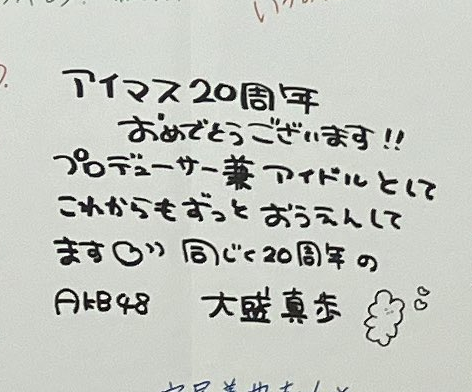 アイマス20周年
おめでとうございます!!
プロデューサー兼アイドルとして
これからもずっとおうえんして
ます♡〃 同じく20周年の
AKB48 大盛真歩